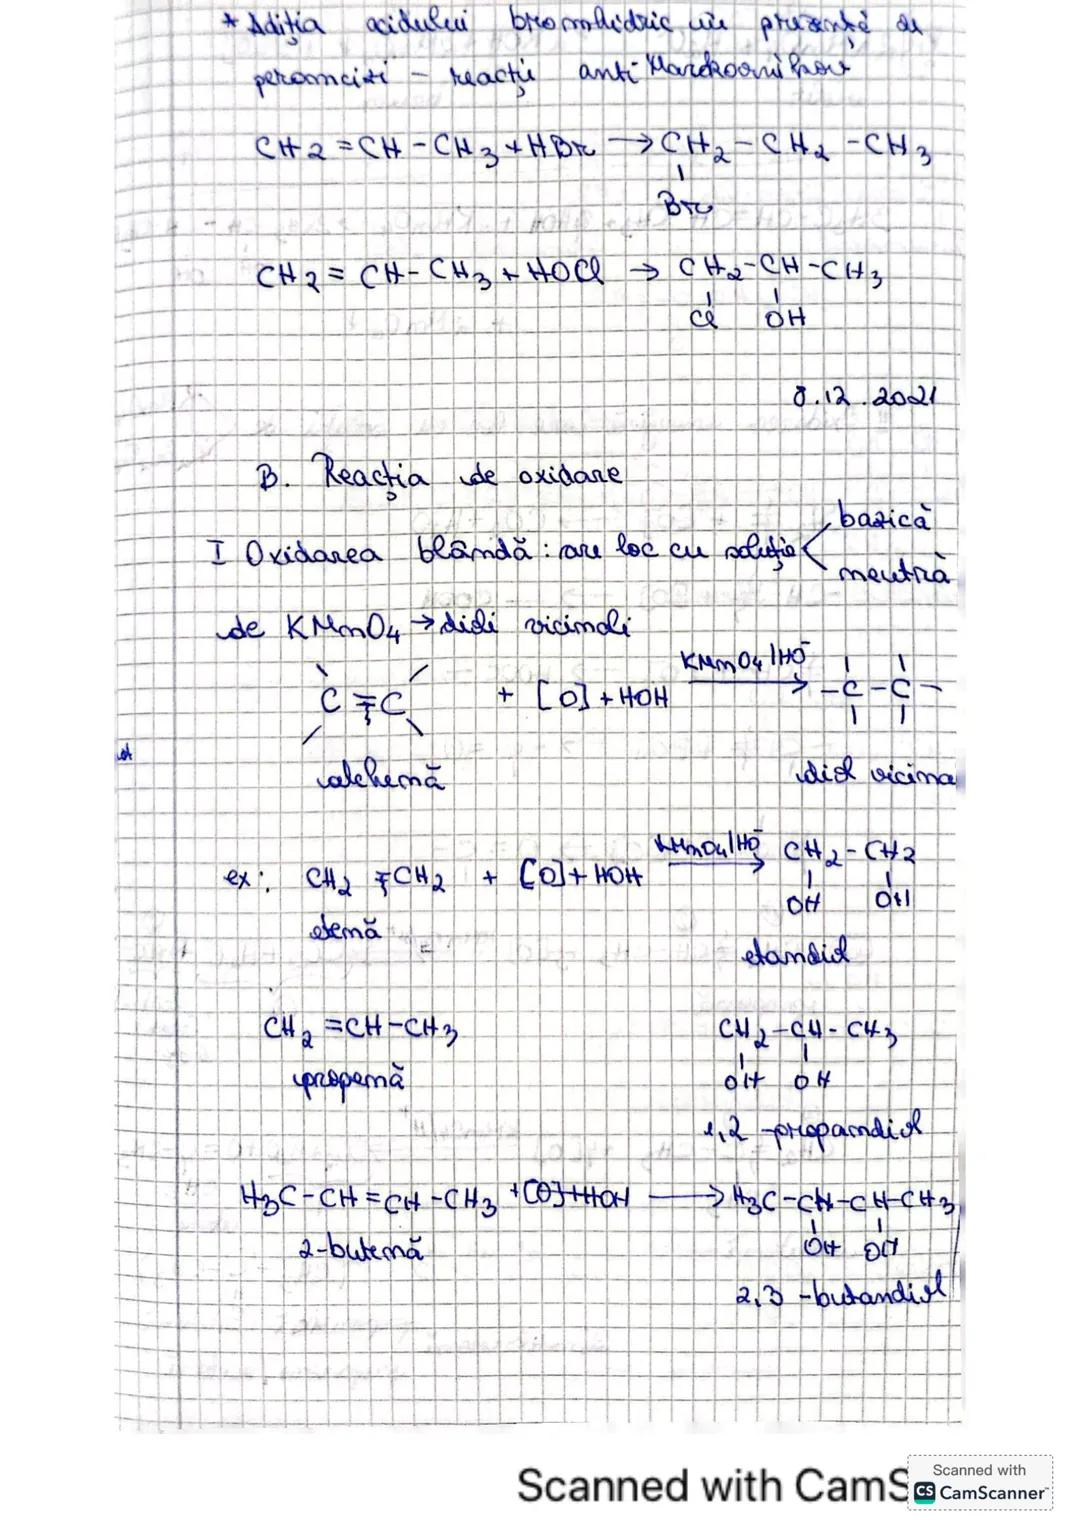 * Adiția acidului bromhidric în prezență de
peroxizi - reacție anti Markovnikov
CH2=CH-CH3+HBr → CH2-CH2-CH3
Br
CH2=CH-CH3+HOCl → CH2-CH-CH3
Cl OH
8.12.2021
B. Reacția de oxidare
bazică
I Oxidarea blândă: are loc cu soluție
neutră
de KMnO4 → dioli vicinali
KMnO4/HO-
C=C + [O]+HOH → -C-C-
alchenă diol vicina
KMnO4/HO-
ex: CH2=CH2 + [O]+HOH → CH2-CH2
OH OH
etenă
etandiol
CH2=CH-CH3 CH2-CH-CH3
OH OH
propenă
1,2-propandiol
H3C-CH=CH-CH3+[O]+HOH → H3C-CH-CH-CH3
OH OH
2-butenă
2,3-butandiol
Scanned with CamS
Scanned with
CS CamScanner